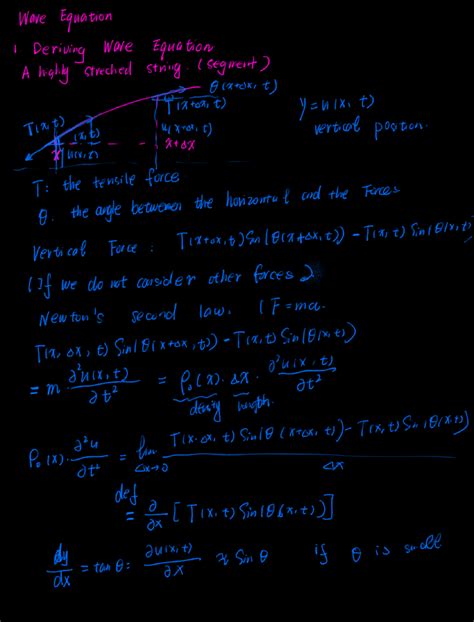 Wave Equation
1 Deriving Wave Equation
A highly streched string. (segment)
θ(x+Δx, t)
T(x+Δx, t)
T(x, t)
(x, t)
u(x+Δx, t)
y=u(x, t)
vertical position.
u(x, t)
x
x+Δx
T: the tensile force
θ. the angle betweenen the horizontal and the Forces
Vertical Force: T(x+Δx, t)Sin(θ(x+Δx, t)) - T(x, t) Sin(θ(x, t)
(If we do not consider other forces)
Newton's second law. (F=ma.
T(x, Δx, t) Sin(θ(x+Δx, t)) - T(x, t) Sin(θ(x, t))
= m · ∂²u(x, t)/∂t² = ρ₀(x) · Δx · ∂²u(x, t)/∂t²
density length.
ρ₀(x) · ∂²u/∂t² = lim Δx→0 T(x·Δx, t) Sin(θ(x+Δx, t)) - T(x, t) Sin(θ(x, t)/Δx
def
= ∂/∂x [T(x, t) Sin(θ(x, t))]
dy/dx = tan θ = ∂u(x, t)/∂x ≈ Sin θ if θ is small